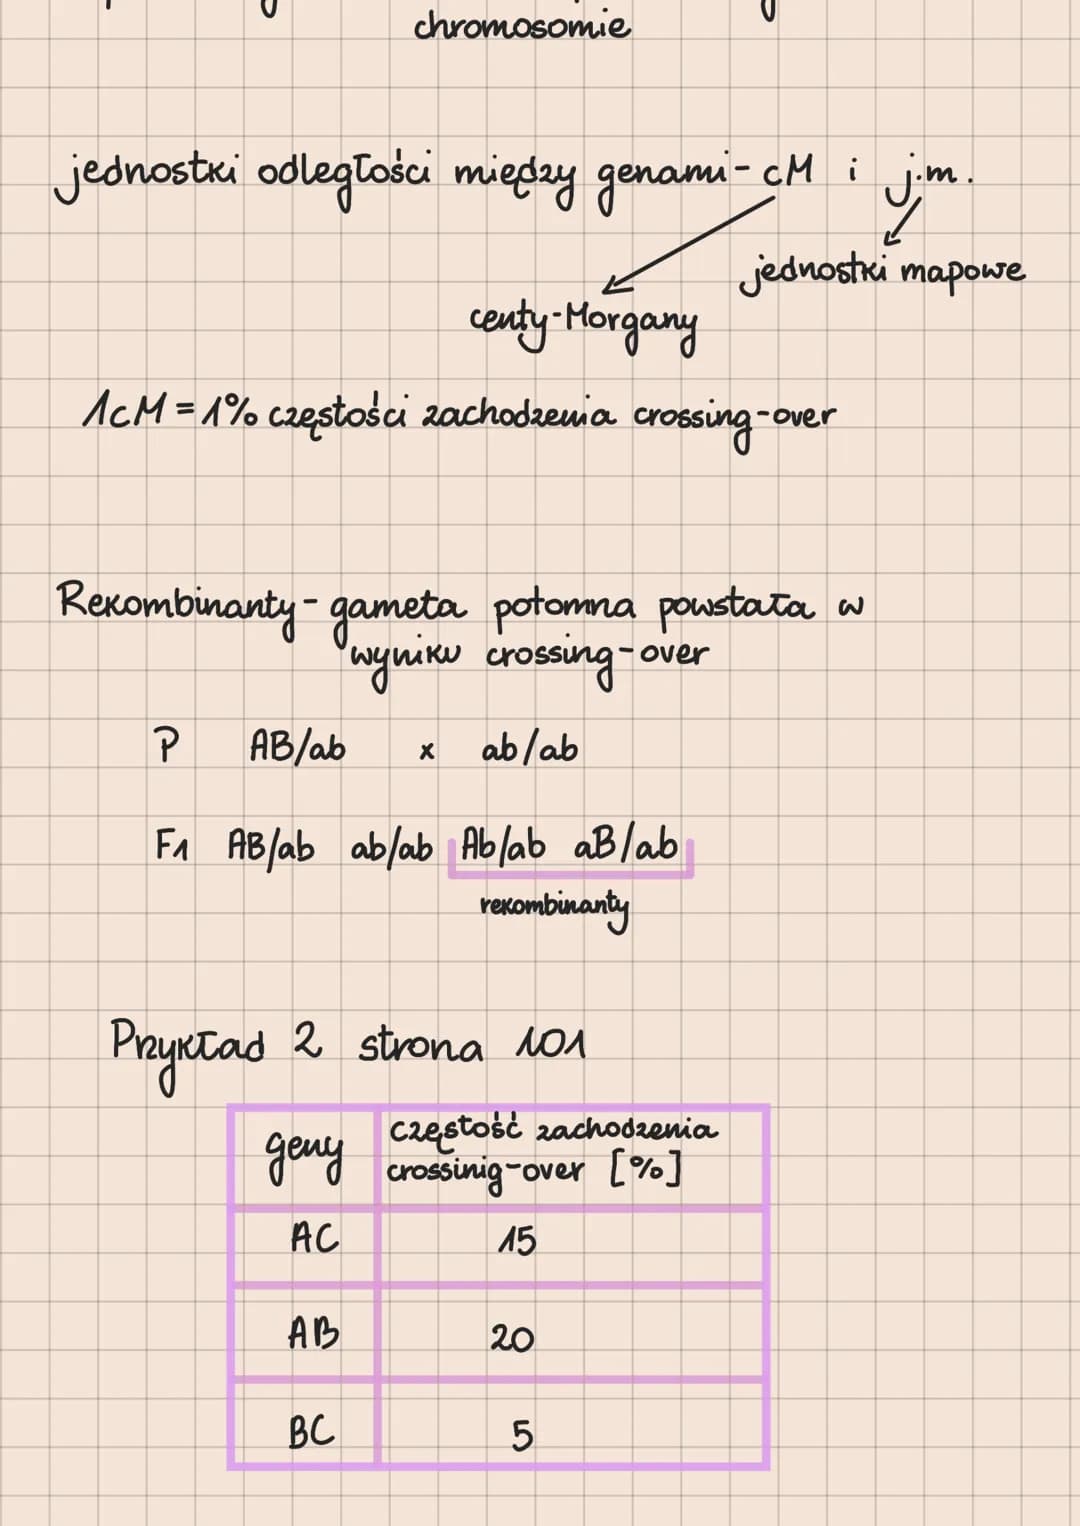 chromosomie
jednostki odległości między genami - cM i j.m.
jednostki mapowe
centy-Morgany
1cM = 1% częstości zachodzenia crossing-over
Rekombinanty - gameta potomna powstała w
wyniku crossing-over
P AB/ab x ab/ab
F1 AB/ab ab/ab Ab/ab aB/ab
rekombinanty
Przykład 2 strona 101
geny częstość zachodzenia
crossinig-over [%]
AC 15
AB 20
BC 5